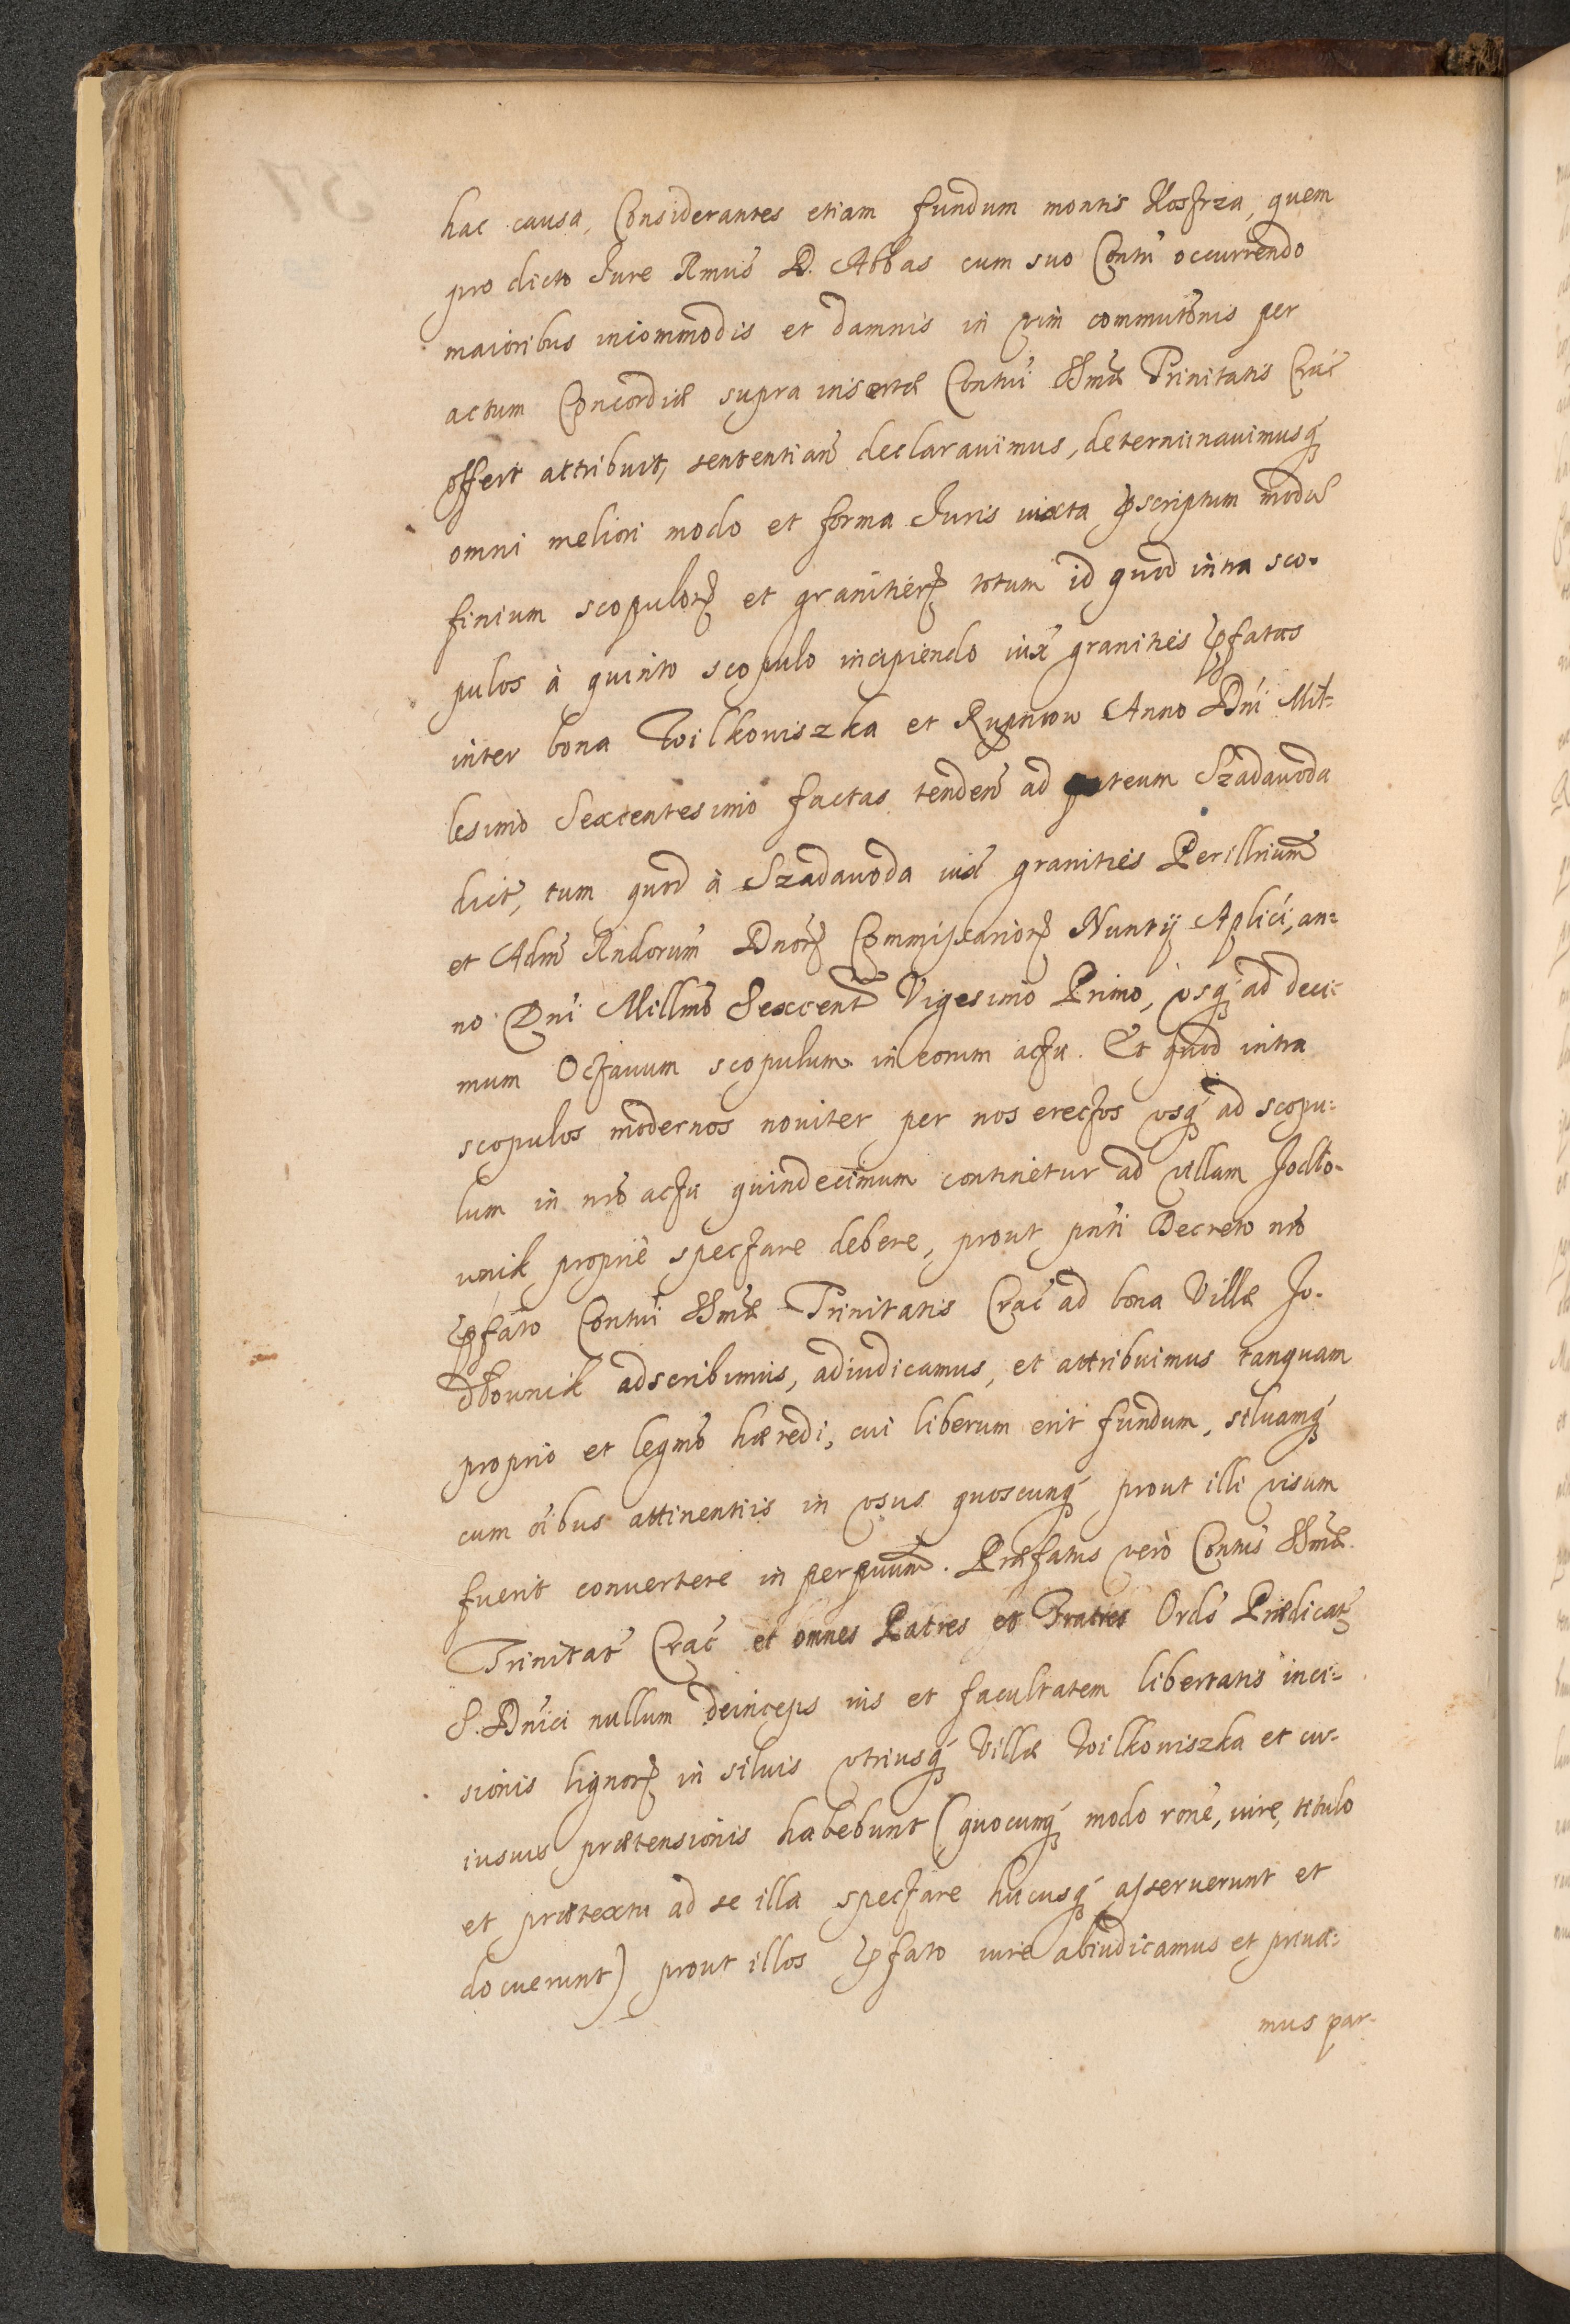 hac causa, Considerantes etiam fundum montis Kostrza, quem
pro dicto Iure Rmus D. Abbas cum suo Contu occurrendo
maioribus incommodis et damnis in vim commutõnis per
actum Concordiæ supra insertæ Contui SSmæ Trinitatis Crac
offert attribuit, sententiam declarauimus, determinauimusq́
omni meliori modo et forma Iuris iuxta p̃scriptum modũ
finium scopulorꝝ et granitierꝝ totum id quod intra sco-
pulos à quinto scopulo incipiendo iuxᵃ granities p̃fatas
inter bona Wilkowiszka et Rupniow Anno Dni Mil-
lesimo Sexcentesimo factas tenden̄ ad puteum Szadawoda
dict, tum quod à Szadawoda iuxᵃ granities Perillrium
et Adm̃ Rndorum Dnorꝝ Commissariorꝝ Nuntij Aplici, an-
no Dni Millmo Sexcent Vigesimo Primo, vsq́ ad deci-
mum Octauum scopulum in eorum actu. Et quod intra
scopulos modernos nouiter per nos erectos vsq́ ad scopu-
lum in nro actu quindecimum continetur ad villam Jodło-
wnik propriè spectare debere, prout pnti Decreto nro
p̃fato Contui SSmæ Trinitatis Crac ad bona Villæ Jo-
dłownik adscribimus, adiudicamus, et attribuimus tanquam
proprio et legmo hæredi, cui liberum erit fundum, siluamq́
cum oibus attinentiis in vsus quoscunq́ prout illi visum
fuerit conuertere in perpuum. Præfatus verò Contus SSmæ
Trinitat Crac et omnes Patres et Fratres Ords Prædicatꝝ
S. Dnici nullum deinceps ius et facultatem libertatis inci-
sionis lignorꝝ in siluis vtriusq́ Villæ Wilkowiszka et cu-
iusuis prætensionis habebunt (quocunq́ modo rone, iure, titulo
et prætextu ad se illa spectare hucusq́ asseruerunt et
docuerunt) prout illos p̃fato iure abiudicamus et priua-
mus par-